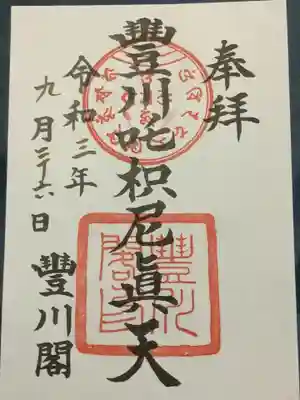 奉拝
豐川吒枳尼眞天
令和三年
九月二十六日
豐川閣